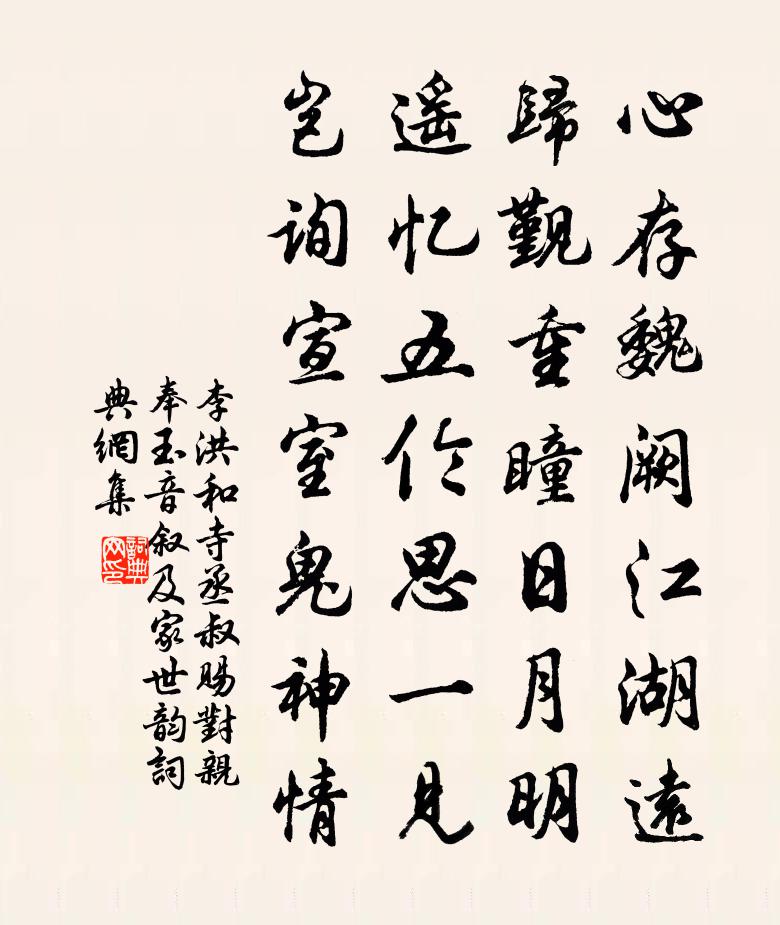 心存魏阙江湖遠
歸覲重瞳日月明
遥忆五伦思一见
岂询宣室鬼神情
李洪和寺丞叔賜對親
奉玉音叙及家世韵詞
典網集
詞典网印